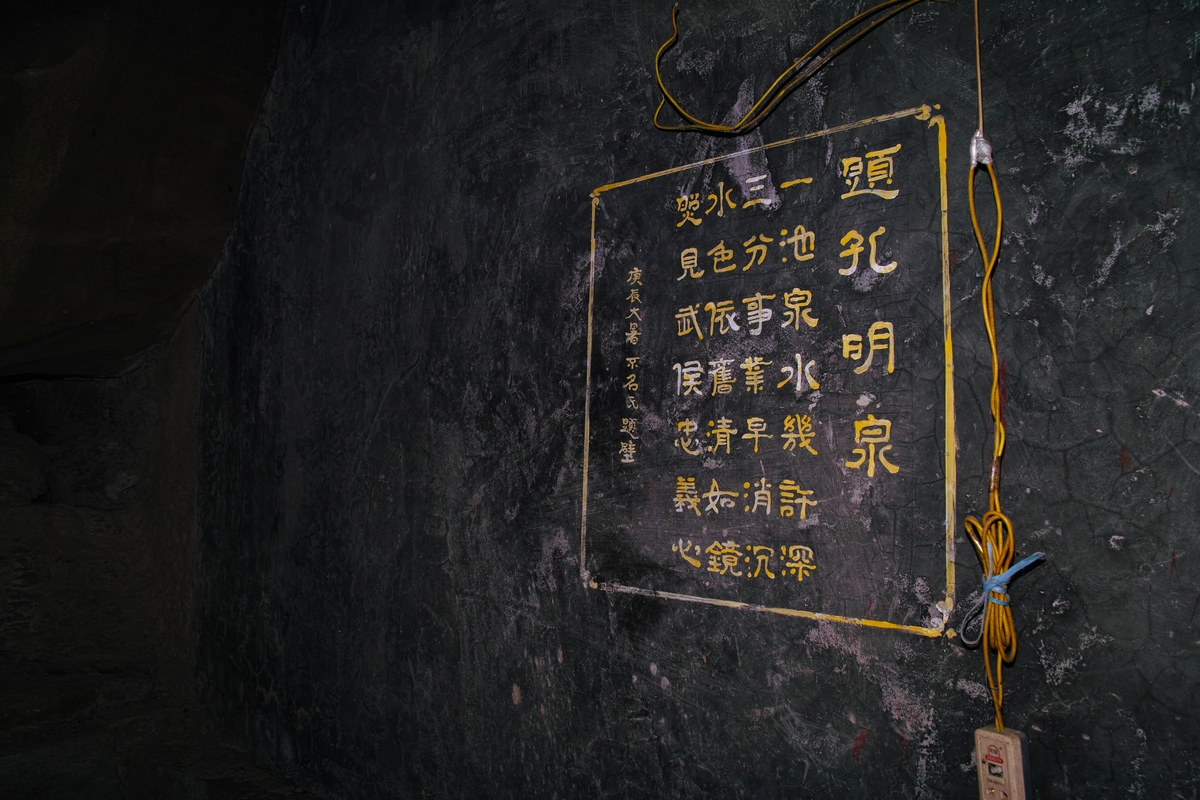 題孔明泉
一池泉水幾許深
三分事業早消沉
水色依舊清如鏡
照見武侯忠義心
庚辰大暑 題壁